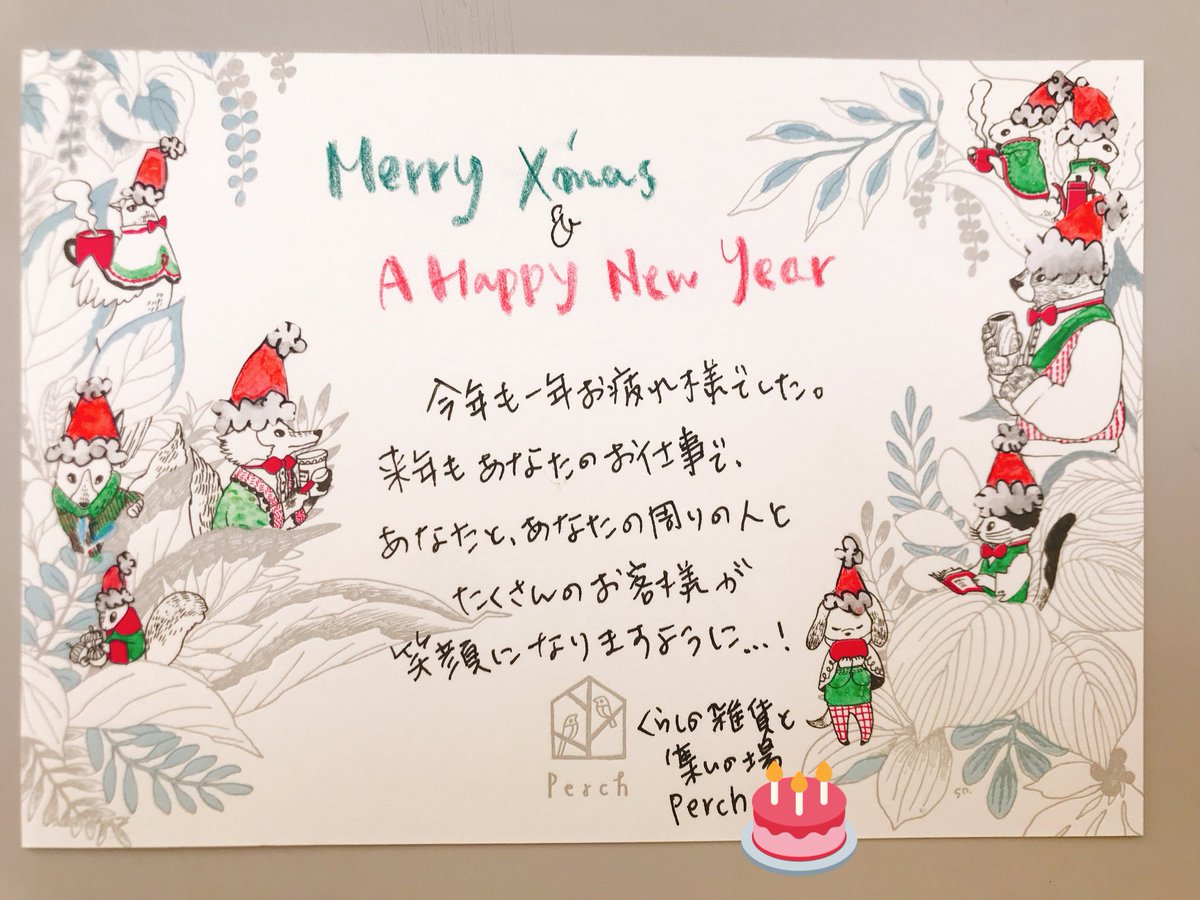 Merry X'mas
&
A Happy New Year
今年も一年お疲れ様でした。
来年もあなたのお仕事で、
あなたと、あなたの周りの人と
たくさんのお客様が
笑顔になりますように…!
Perch
くらしの雑貨と
集いの場
Perch